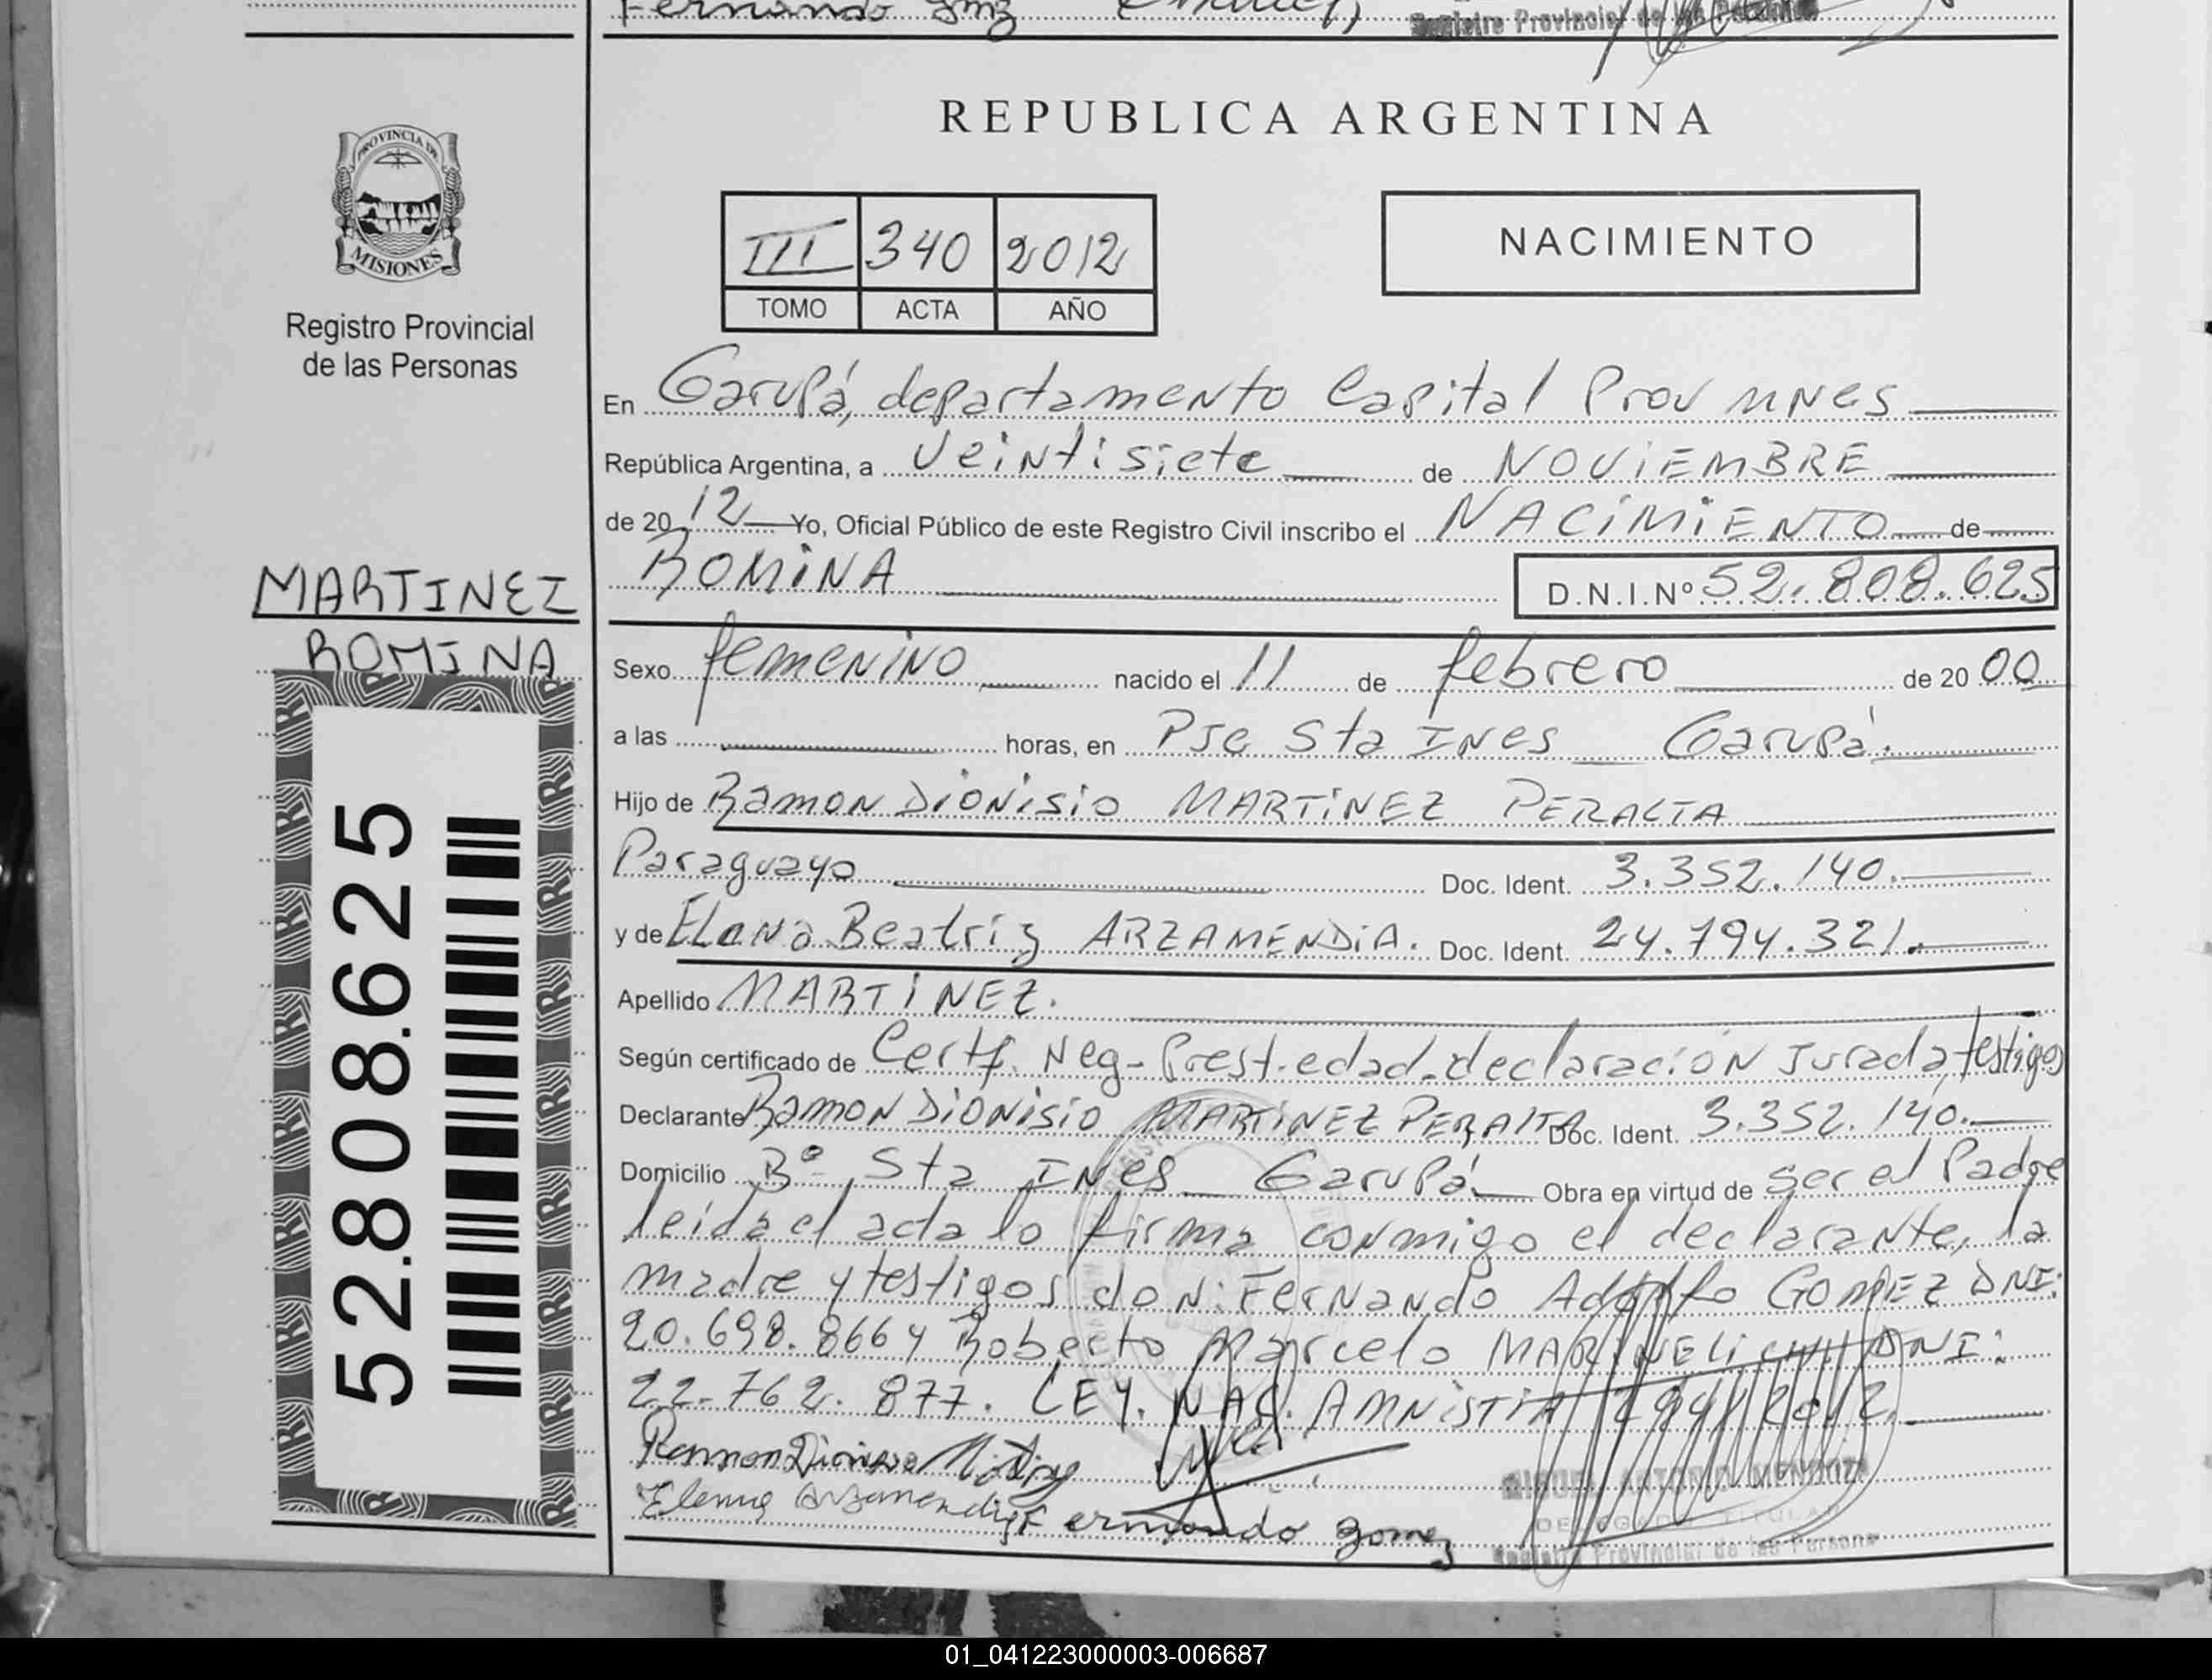 Fernando Gmz
Registro Provincial de las Personas
PROVINCIA DE
MISIONES
Registro Provincial
de las Personas
REPUBLICA ARGENTINA
III 340 2012
TOMO ACTA AÑO
NACIMIENTO
En Garupá, departamento Capital Prov MNes
República Argentina, a veintisiete de NOVIEMBRE
de 2012 Yo, Oficial Público de este Registro Civil inscribo el NACIMIENTO de
ROMINA D.N.I.Nº 52.808.625
MARTINEZ
ROMINA
52.808.625
Sexo femenino nacido el 11 de febrero de 2000
a las horas, en Pje Sta INes Garupá.
Hijo de Ramon Dionisio MARTINEZ PERALTA
Paraguayo Doc. Ident. 3.352.140.
y de Elena Beatriz ARZAMENDIA. Doc. Ident. 24.794.321.
Apellido MARTINEZ.
Según certificado de Certf. Neg-Prest.edad.declaración Jurada, testigos
Declarante Ramon Dionisio MARTINEZ PERALTA Doc. Ident. 3.352.140.
Domicilio Bº Sta INes Garupá Obra en virtud de ser el Padre
leida el acta lo firma conmigo el declarante, la
madre y testigos don: Fernando Adolfo GOMEZ DNI:
20.698.866 y Roberto Marcelo DNI:
22.762.877. LEY. NAC. AMNISTIA 2012.
Ramon Dionisio
Elena Arzamendia Fernando gomez
MIGUEL ANTONIO MENDOZA
DELEGADO TITULAR
Registro Provincial de las Persona
01_041223000003-006687